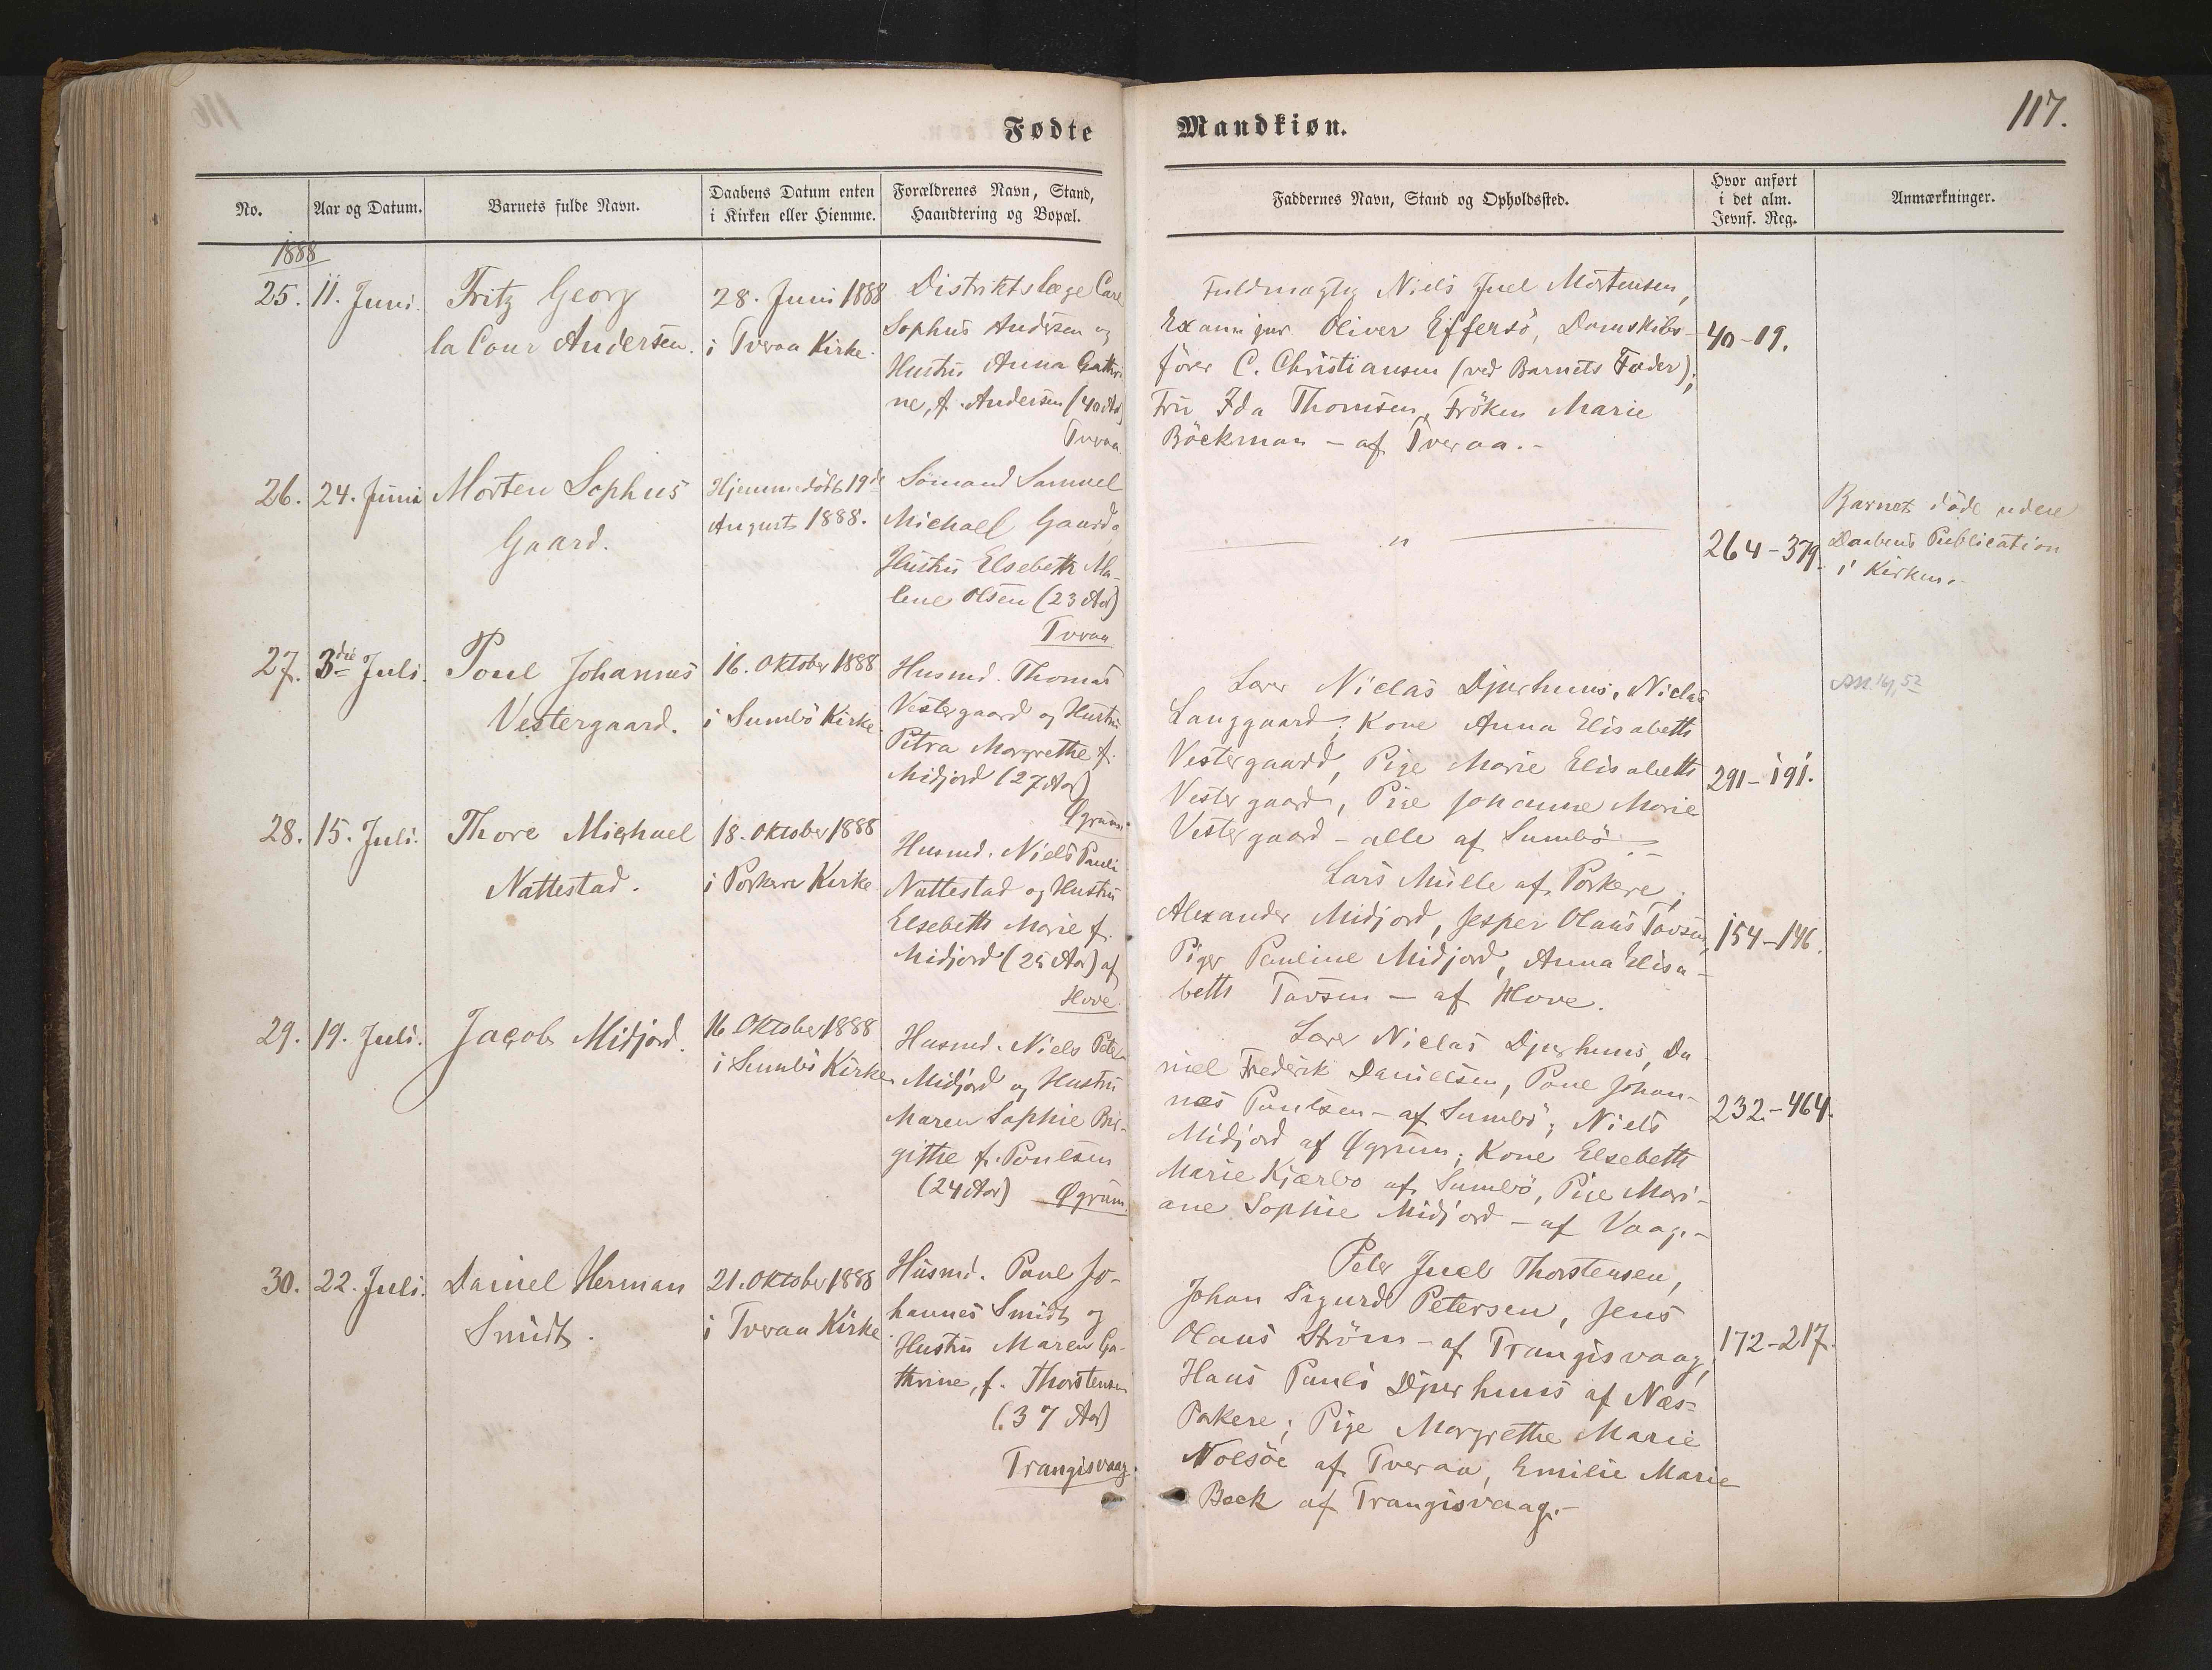 117.
Fødte Mandkiøn.
No.
Aar og Datum.
Barnets fulde Navn.
Daabens Datum enten
i Kirken eller Hiemme.
Forældrenes Navn, Stand,
Haandtering og Bopæl.
Faddernes Navn, Stand og Opholdssted.
Hvor anført
i det alm.
Jevnf. Reg.
Anmærkninger.
1888
25.
11. Juni.
Fritz Georg
la Cour Andersen.
28. Juni 1888
i Tveraa Kirke.
Distriktslæge Carl
Sophus Andersen og
Hustru Anna Cathri
ne, f. Andersen (40 Aar)
Tveraa.
Fuldmægtig Niels Juel Mortensen,
Examinjur Oliver Effersö, Damskibs-
förer C. Christiansen (ved Barnets Fader);
Fru Ida Thomsen, Fröken Marie
Böckman - af Tveraa.-
40-19.
26.
24. Juni
Morten Sophus
Gaard.
Hjemmedöbt 19de
August 1888.
Sömand Samuel
Michael Gaard,
Hustru Elsebeth Ma-
lene Olsen (23 Aar)
Tveraa
"
264-379.
Barnet döde uden
Daabens Publication
i Kirken.
27.
3die Juli.
Poul Johannes
Vestergaard.
16. Oktober 1888
i Sumbö Kirke.
Husmd. Thomas
Vestergaard og Hustru
Petra Margrethe f.
Midjord (27 Aar)
Ögrum.
Lærer Niclas Djurhuus, Niclas
Langgaard; Kone Anna Elisabeth
Vestergaard, Pige Marie Elisabeth
Vestergaard, Pige Johanne Marie
Vestergaard - alle af Sumbö.-
291-191.
28.
15. Juli.
Thore Michael
Nattestad.
18. Oktober 1888
i Porkere Kirke.
Husmd. Niels Pauli
Nattestad og Hustru
Elsebeth Marie f.
Midjord (25 Aar) af
Hove.
Lars Mülle af Porkere;
Alexander Midjord, Jesper Olaus Tavsen,
Piger Pauline Midjord, Anna Elisa-
beth Tavsen - af Hove.
154-146.
29.
19. Juli.
Jacob Midjord.
16. Oktober 1888
i Sumbö Kirke.
Husmd. Niels Peter
Midjord og Hustru
Maren Sophie Bir-
githe f. Poulsen
(24 Aar) Ögrum.
Lærer Niclas Djurhuus, Da-
niel Frederik Danielsen, Poul Johan-
nes Poulsen - af Sumbö; Niels
Midjord af Ögrum; Kone Elsebeth
Marie Kjærbo af Sumbö, Pige Mari-
ane Sophie Midjord - af Vaag.-
232-464.
30.
22. Juli.
Daniel Herman
Smidt.
21. Oktober 1888
i Tveraa Kirke.
Husmd. Poul Jo-
hannes Smidt og
Hustru Maren Ca-
thrine, f. Thorstensen
(37 Aar)
Trangisvaag.
Peter Juel Thorstensen,
Johan Sigurd Petersen, Jens
Olaus Ström - af Trangisvaag,
Hans Pauli Djurhuus af Næs-
Porkere; Pige Margrethe Marie
Nolsöe af Tveraa, Emilie Marie
Beck af Trangisvaag.-
172-217.